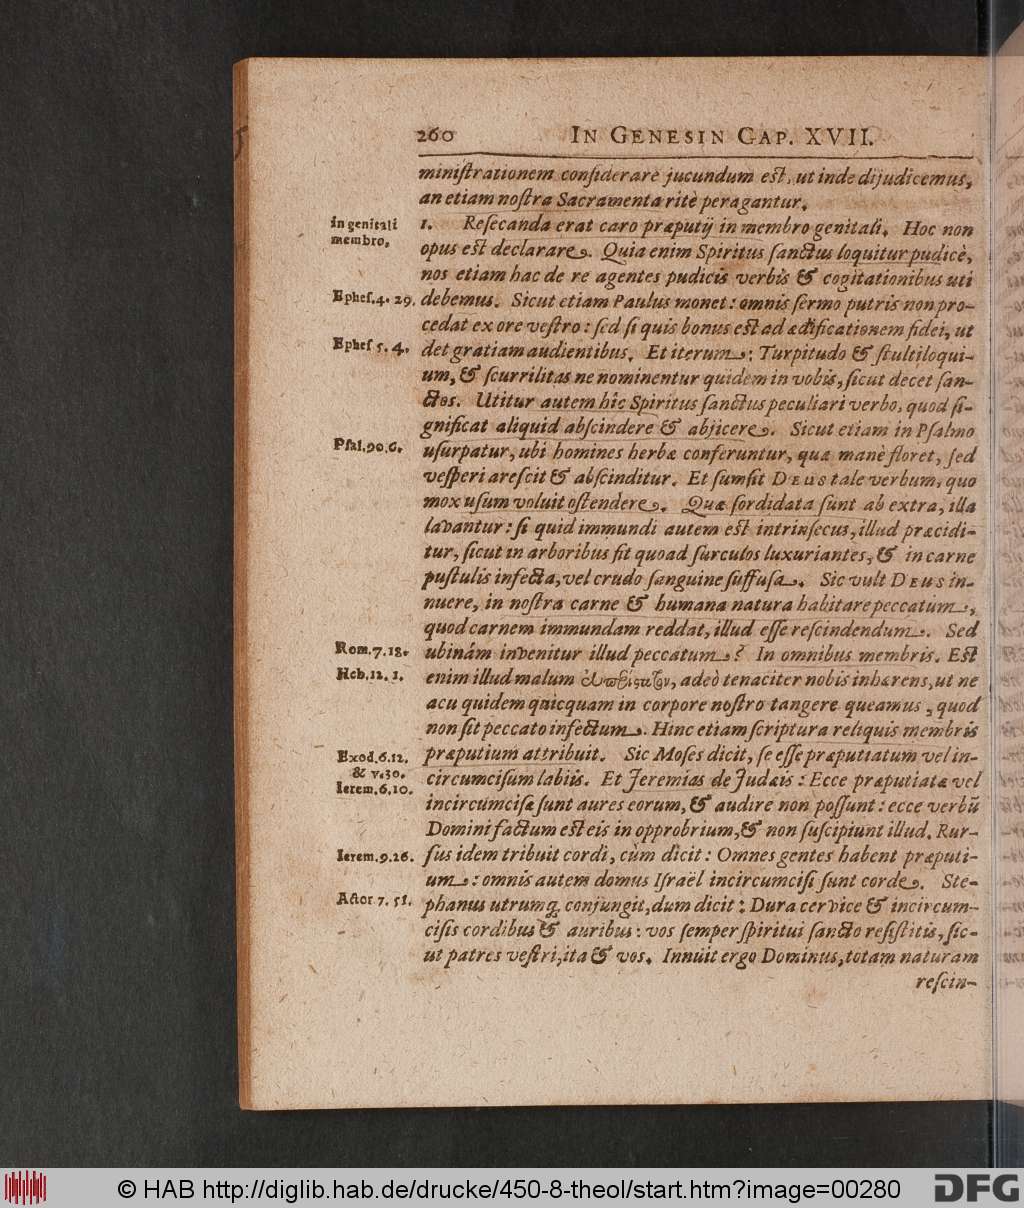 260 IN GENESIN CAP. XVII.
miniſtrationem conſiderare jucundum eſt, ut inde dijudicemus,
an etiam noſtra Sacramenta ritè peragantur.
in genitali
membro.
1. Reſecanda erat caro præputij in membro genitali. Hoc non
opus eſt declarare. Quia enim Spiritus ſanctus loquitur pudicè,
nos etiam hac de re agentes pudicis verbis & cogitationibus uti
Epheſ. 4. 29.
debemus. Sicut etiam Paulus monet: omnis ſermo putris non pro-
cedat ex ore veſtro: ſed ſi quis bonus eſt ad ædificationem fidei, ut
Epheſ 5. 4.
det gratiam audientibus. Et iterum: Turpitudo & ſtultiloqui-
um, & ſcurrilitas ne nominentur quidem in vobis, ſicut decet ſan-
ctos. Utitur autem hic Spiritus ſanctus peculiari verbo, quod ſi-
gnificat aliquid abſcindere & abjicere. Sicut etiam in Pſalmo
Pſal. 90. 6.
uſurpatur, ubi homines herbæ conferuntur, quæ manè floret, ſed
veſperi areſcit & abſcinditur. Et ſumſit DEUS tale verbum, quo
mox uſum voluit oſtendere. Quæ ſordidata ſunt ab extra, illa
lavantur: ſi quid immundi autem eſt intrinſecus, illud præcidi-
tur, ſicut in arboribus fit quoad ſurculos luxuriantes, & in carne
puſtulis infecta, vel crudo ſanguine ſuffuſa. Sic vult DEUS in-
nuere, in noſtra carne & humana natura habitare peccatum,
quod carnem immundam reddat, illud eſſe reſcindendum. Sed
Rom. 7. 18.
ubinám invenitur illud peccatum? In omnibus membris. Eſt
Heb. 12. 1.
enim illud malum , adeò tenaciter nobis inhærens, ut ne
acu quidem quicquam in corpore noſtro tangere queamus, quod
non ſit peccato infectum. Hinc etiam ſcriptura reliquis membris
præputium attribuit. Sic Moſes dicit, ſe eſſe præputiatum vel in-
Exod. 6. 12.
& v. 30.
circumciſum labiis. Et Jeremias de Judæis: Ecce præputiatæ vel
Ierem. 6. 10.
incircumciſæ ſunt aures eorum, & audire non poſſunt: ecce verbũ
Domini factum eſt eis in opprobrium, & non ſuſcipiunt illud. Rur-
Ierem. 9. 26.
ſus idem tribuit cordi, cùm dicit: Omnes gentes habent præputi-
um: omnis autem domus Iſraël incircumciſi ſunt corde. Ste-
Actor. 7. 51.
phanus utrumq́; conjungit, dum dicit: Dura cervice & incircum-
ciſis cordibus & auribus: vos ſemper ſpiritui ſancto reſiſtitis, ſic-
ut patres veſtri, ita & vos. Innuit ergo Dominus, totam naturam
reſcin-
© HAB http://diglib.hab.de/drucke/450-8-theol/start.htm?image=00280
DFG